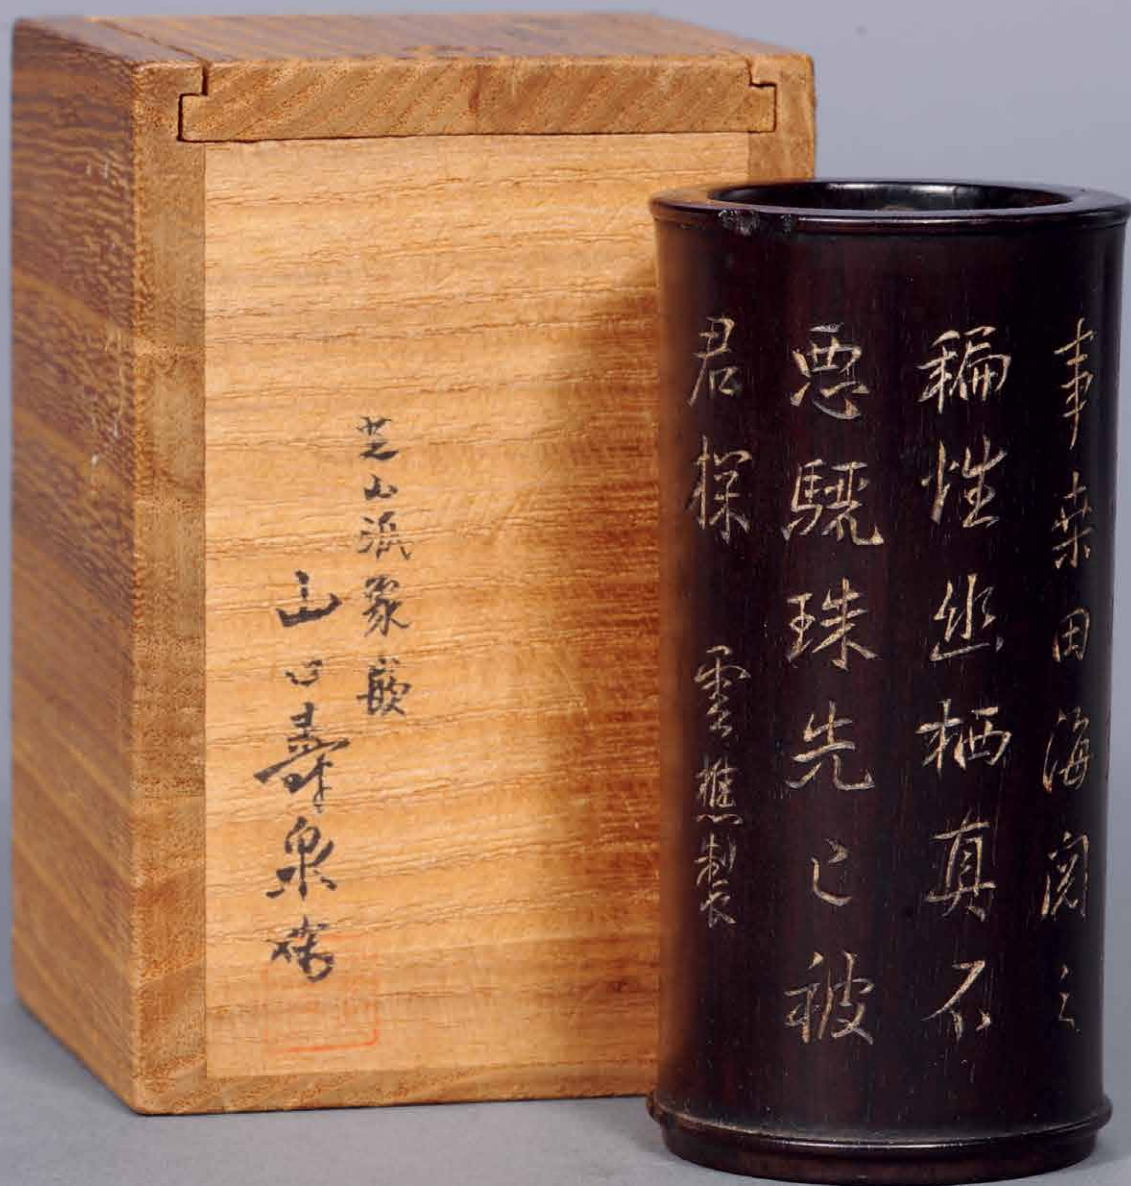 芝山派象嵌
山口壽泉
事桒田海閱之
褊性幽栖真不
惡驪珠先已被
君探 雲樵製